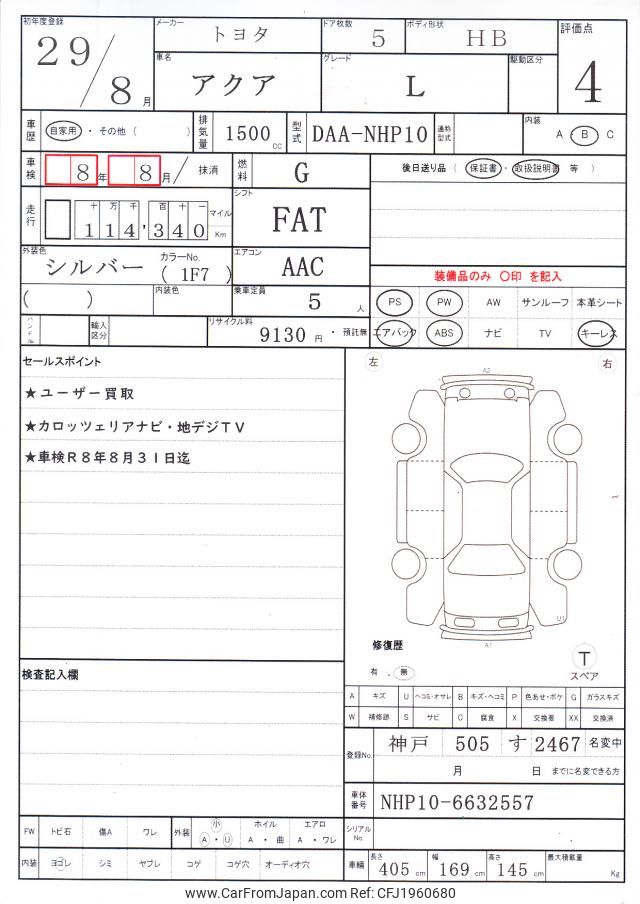 初年度登録 29/8月
メーカー トヨタ
ドア枚数 5
ボディ形状 HB
評価点 4
車名 アクア
グレード L
駆動区分
車歴 自家用・その他( )
排気量 1500cc
型式 DAA-NHP10
通称型式
内装 A・B C
車検 8年 8月/ 抹消
燃料 G
後日送り品( 保証書・取扱説明書 等 )
走行 十万千百十一 114,340 マイル Km
シフト FAT
外装色 シルバー カラーNo.( 1F7 )
エアコン AAC
装備品のみ ○印 を記入
( ) 内装色
乗車定員 5人
PS PW AW サンルーフ 本革シート
輸入区分
リサイクル料 9130円・預託無
エアバック ABS ナビ TV キーレス
セールスポイント
★ユーザー買取
★カロッツェリアナビ・地デジTV
★車検R8年8月31日迄
左 右
A2
U1
A1
修復歴
有 . 無
T
スペア
検査記入欄
A キズ U ヘコミ・オサレ B キズ・ヘコミ P 色あせ・ボケ G ガラスキズ
W 補修跡 S サビ C 腐食 X 交換要 XX 交換済
登録No. 神戸 505 す 2467 名変中
月 日 までに名変できる方
車体番号 NHP10-6632557
シリアルNo
FW トビ石 傷A ワレ 外装 小 A・U ホイル A・曲 エアロ A・ワレ
内装 ヨゴレ シミ ヤブレ コゲ コゲ穴 オーディオ穴
車輌 長さ 405cm 幅 169cm 高さ 145cm 最大積載量 Kg
www.CarFromJapan.com Ref: CFJ1960680